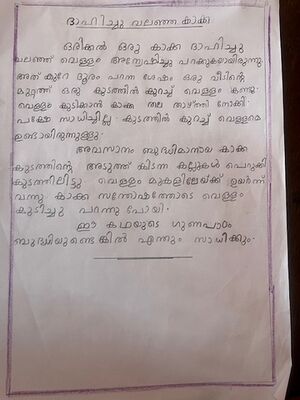 ദാഹിച്ചു വലഞ്ഞ കാക്ക
ഒരിക്കൽ ഒരു കാക്ക ദാഹിച്ചു
വലഞ്ഞ് വെള്ളം അന്വേഷിച്ചു പറക്കുകയായിരുന്നു
അത് കുറേ ദൂരം പറന്ന ശേഷം ഒരു വീടിന്റെ
മുറ്റത്ത് ഒരു കുടത്തിൽ കുറച്ച് വെള്ളം കണ്ടു.
വെള്ളം കുടിക്കാൻ കാക്ക തല താഴ്ത്തി നോക്കി
പക്ഷേ സാധിച്ചില്ല. കുടത്തിൽ കുറച്ച് വെള്ളമെ
ഉണ്ടായിരുന്നുള്ളു.
അവസാനം ബുദ്ധിമാനായ കാക്ക
കുടത്തിന്റെ അടുത്ത് കിടന്ന കല്ലുകൾ പെറുക്കി
കുടത്തിലിട്ടു. വെള്ളം മുകളിലേയ്ക്ക് ഉയർന്ന്
വന്നു കാക്ക സന്തോഷത്തോടെ വെള്ളം
കുടിച്ചു പറന്നു പോയി.
ഈ കഥയുടെ ഗുണപാഠം
ബുദ്ധിയുണ്ടെങ്കിൽ എന്തും സാധിക്കും.